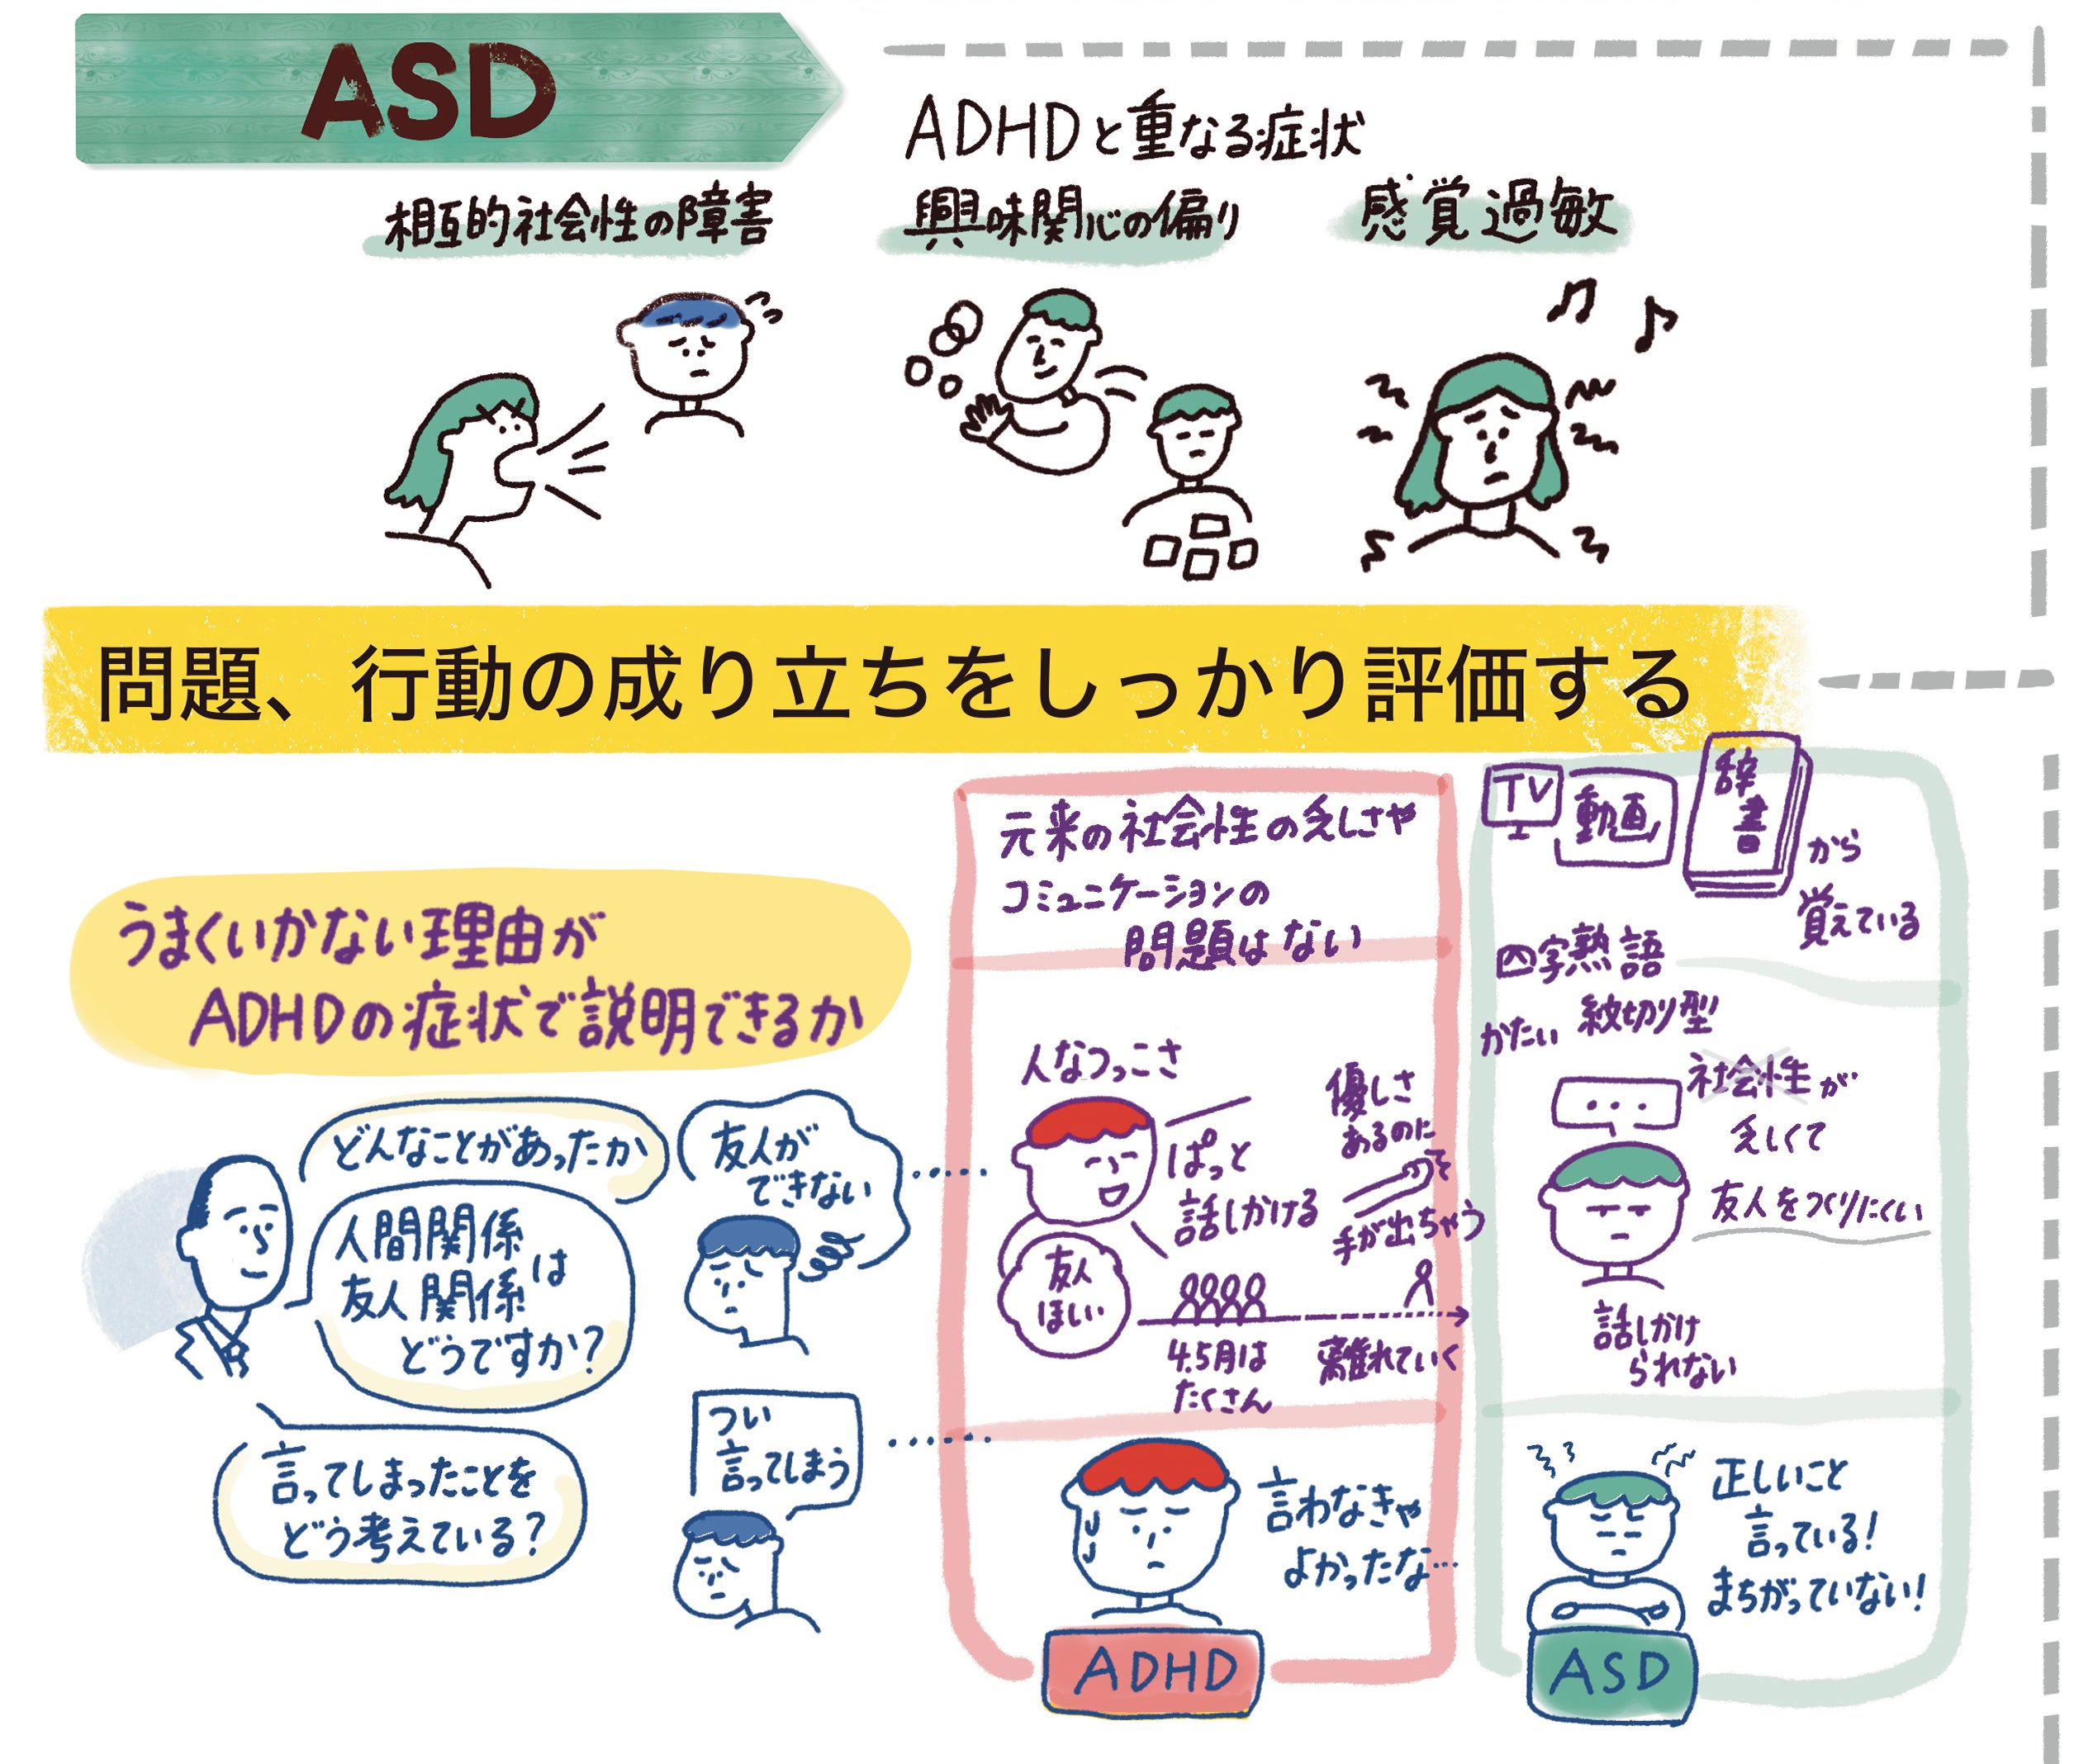 ASD
相互的社会性の障害
ADHDと重なる症状
興味関心の偏り
感覚過敏
問題、行動の成り立ちをしっかり評価する
うまくいかない理由が
ADHDの症状で説明できるか
どんなことがあったか
人間関係
友人関係は
どうですか?
言ってしまったことを
どう考えている?
友人が
できない
つい
言ってしまう
元来の社会性の乏しさや
コミュニケーションの
問題はない
人なつっこさ
ぱっと
話しかける
優しさ
あるのに
手が出ちゃう
友人
ほしい
4.5月は
たくさん
離れていく
言わなきゃ
よかったな…
ADHD
TV
動画
辞書
から
覚えている
四字熟語
かたい 紋切り型
...
社会性が
乏しくて
友人をつくりにくい
話しかけ
られない
正しいこと
言っている!
まちがっていない!
ASD